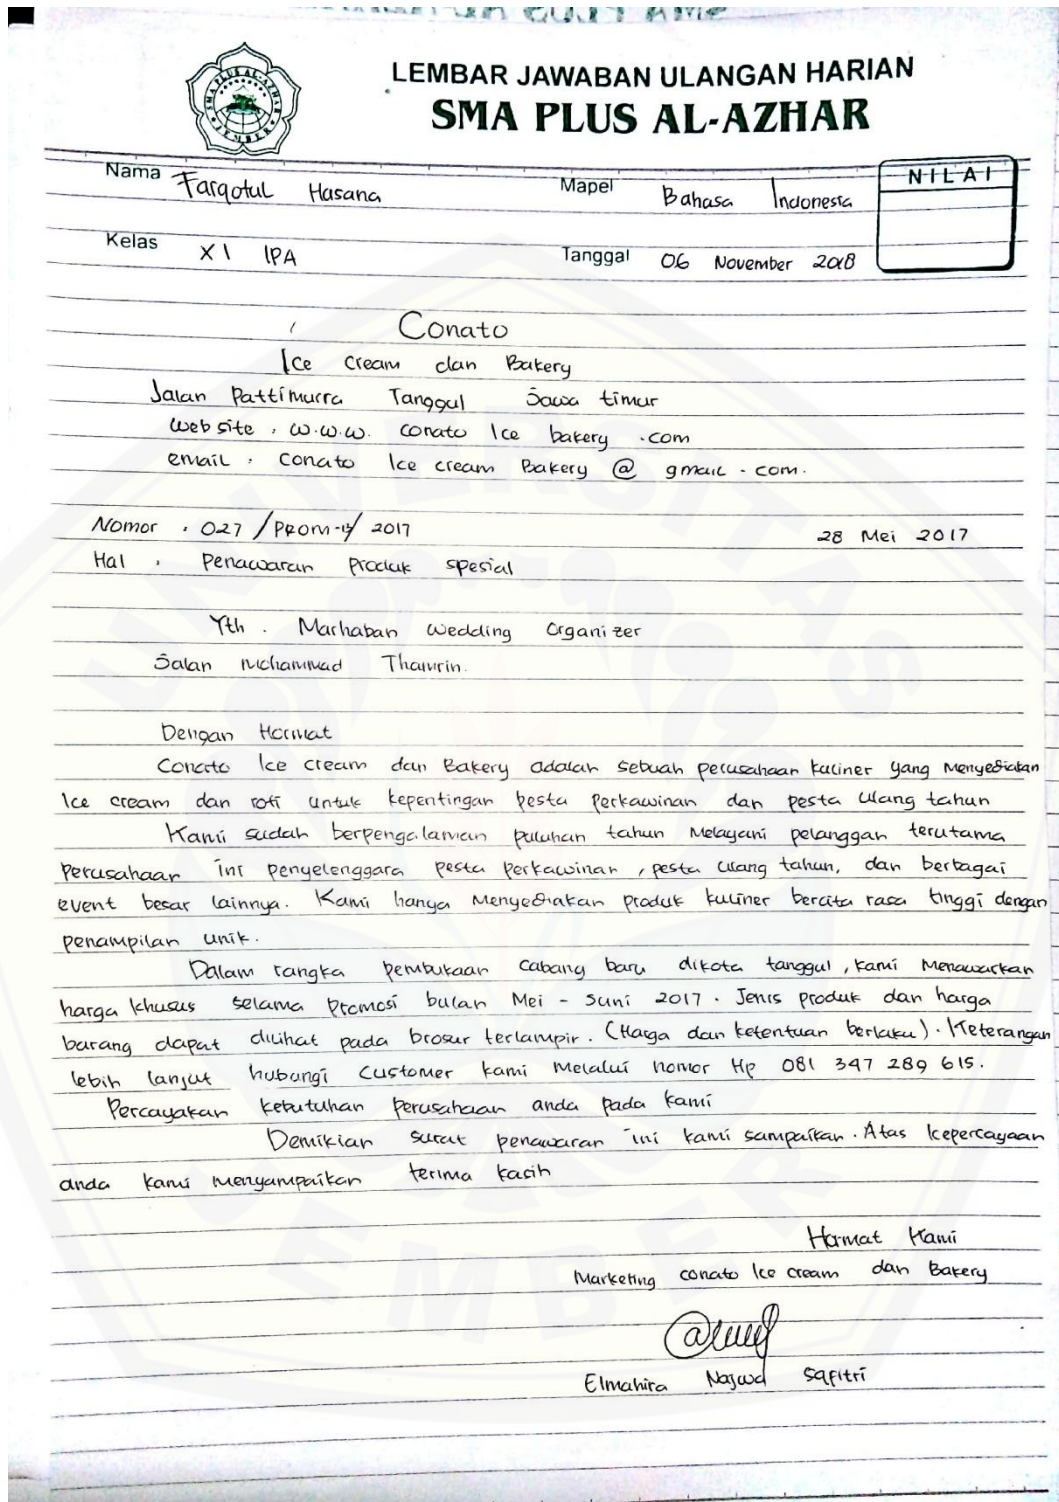 LEMBAR JAWABAN ULANGAN HARIAN
SMA PLUS AL-AZHAR
SMA PLUS AL-AZHAR
JEMBER
Nama Farqotul Hasana Mapel Bahasa Indonesia NILAI
Kelas XI IPA Tanggal 06 November 2018
Conato
Ice Cream dan Bakery
Jalan Pattimurra Tanggul Jawa timur
Web site : w.w.w. conato Ice bakery .com
email : Conato Ice cream Bakery @ gmail . com.
Nomor : 027 /PROM-14/ 2017 28 Mei 2017
Hal : Penawaran Produk spesial
Yth . Marhaban Wedding Organizer
Jalan Mohammad Thamrin.
Dengan Hormat
Conato Ice cream dan Bakery adalah sebuah perusahaan kuliner yang Menyediakan
Ice cream dan roti untuk kepentingan pesta perkawinan dan pesta ulang tahun
Kami sudah berpengalaman puluhan tahun Melayani pelanggan terutama
perusahaan ini penyelenggara pesta perkawinan, pesta ulang tahun, dan berbagai
event besar lainnya. Kami hanya Menyediakan produk kuliner bercita rasa tinggi dengan
penampilan unik.
Dalam rangka pembukaan Cabang baru dikota tanggul, kami Menawarkan
harga khusus selama Promosi bulan Mei - Juni 2017. Jenis produk dan harga
barang dapat dilihat pada brosur terlampir. (Harga dan ketentuan berlaku). Keterangan
lebih lanjut hubungi Customer kami Melalui nomor Hp 081 347 289 615.
Percayakan kebutuhan perusahaan anda pada kami
Demikian surat penawaran ini kami sampaikan. Atas kepercayaan
anda kami menyampaikan terima kasih
Hormat Kami
Marketing conato Ice cream dan Bakery
Elmahira Najwa Safitri
UNIVERSITAS
JEMBER